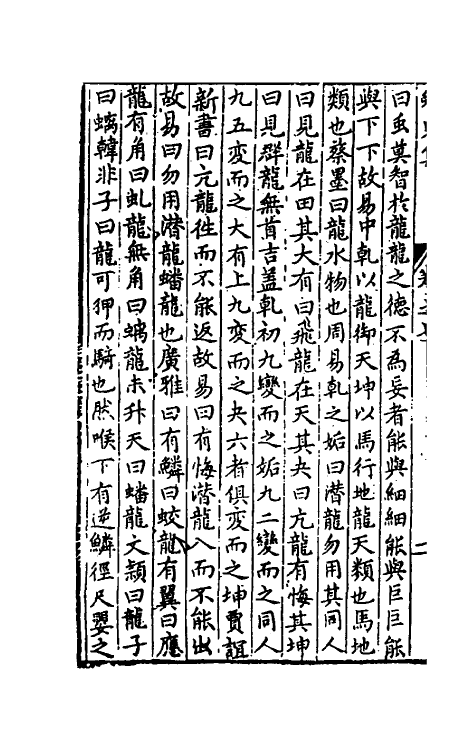 曰虫莫智於龍龍之德不為妄者能與細細能與巨巨能
與下下故易中乹以龍御天坤以馬行地龍天類也馬地
類也蔡墨曰龍水物也周易乹之姤曰潜龍勿用其同人
曰見龍在田其大有曰飛龍在天其夬曰亢龍有悔其坤
曰見群龍無首吉蓋乹初九變而之姤九二變而之同人
九五变而之大有上九变而之夬六者俱变而之坤賈誼
新書曰亢龍徃而不能返故易曰有悔潜龍入而不能出
故易曰勿用潜龍蟠龍也廣雅曰有鱗曰蛟龍有翼曰應
龍有角曰虬龍無角曰螭龍未升天曰蟠龍文頴曰龍子
曰螭韓非子曰龍可狎而騎也然喉下有逆鱗徑尺嬰之